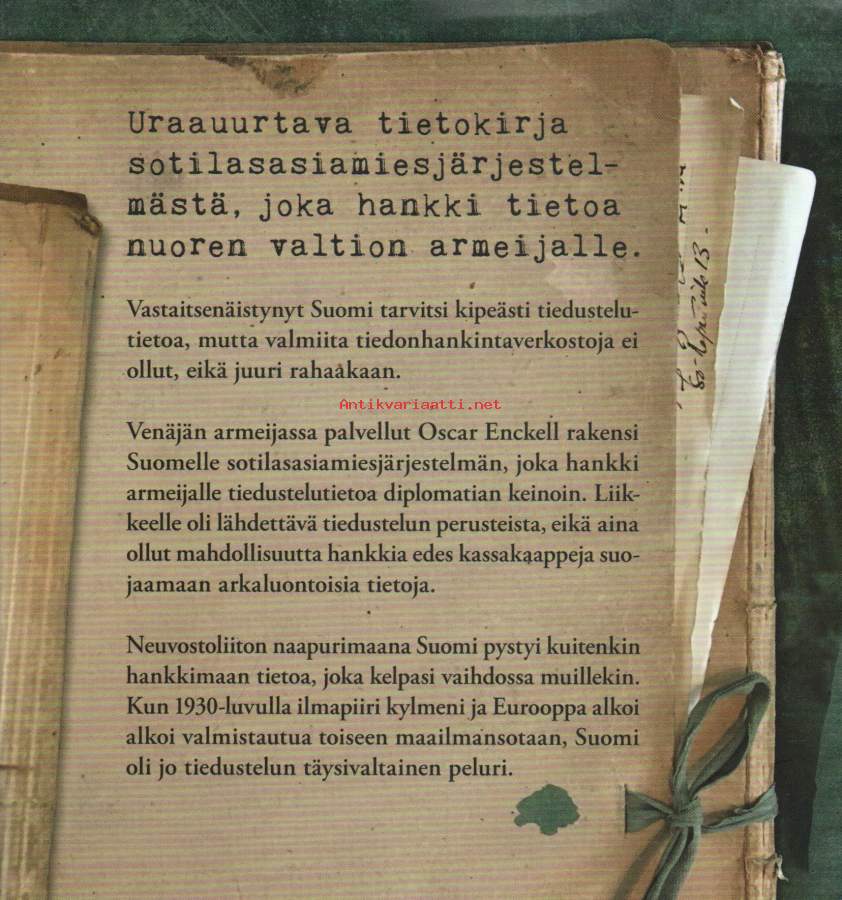 Uraauurtava tietokirja
sotilasasiamiesjärjestel-
mästä, joka hankki tietoa
nuoren valtion armeijalle.
Vastaitsenäistynyt Suomi tarvitsi kipeästi tiedustelu-
tietoa, mutta valmiita tiedonhankintaverkostoja ei
ollut, eikä juuri rahaakaan.
Antikvariaatti.net
Venäjän armeijassa palvellut Oscar Enckell rakensi
Suomelle sotilasasiamiesjärjestelmän, joka hankki
armeijalle tiedustelutietoa diplomatian keinoin. Liik-
keelle oli lähdettävä tiedustelun perusteista, eikä aina
ollut mahdollisuutta hankkia edes kassakaappeja suo-
jaamaan arkaluontoisia tietoja.
Neuvostoliiton naapurimaana Suomi pystyi kuitenkin
hankkimaan tietoa, joka kelpasi vaihdossa muillekin.
Kun 1930-luvulla ilmapiiri kylmeni ja Eurooppa alkoi
alkoi valmistautua toiseen maailmansotaan, Suomi
oli jo tiedustelun täysivaltainen peluri.